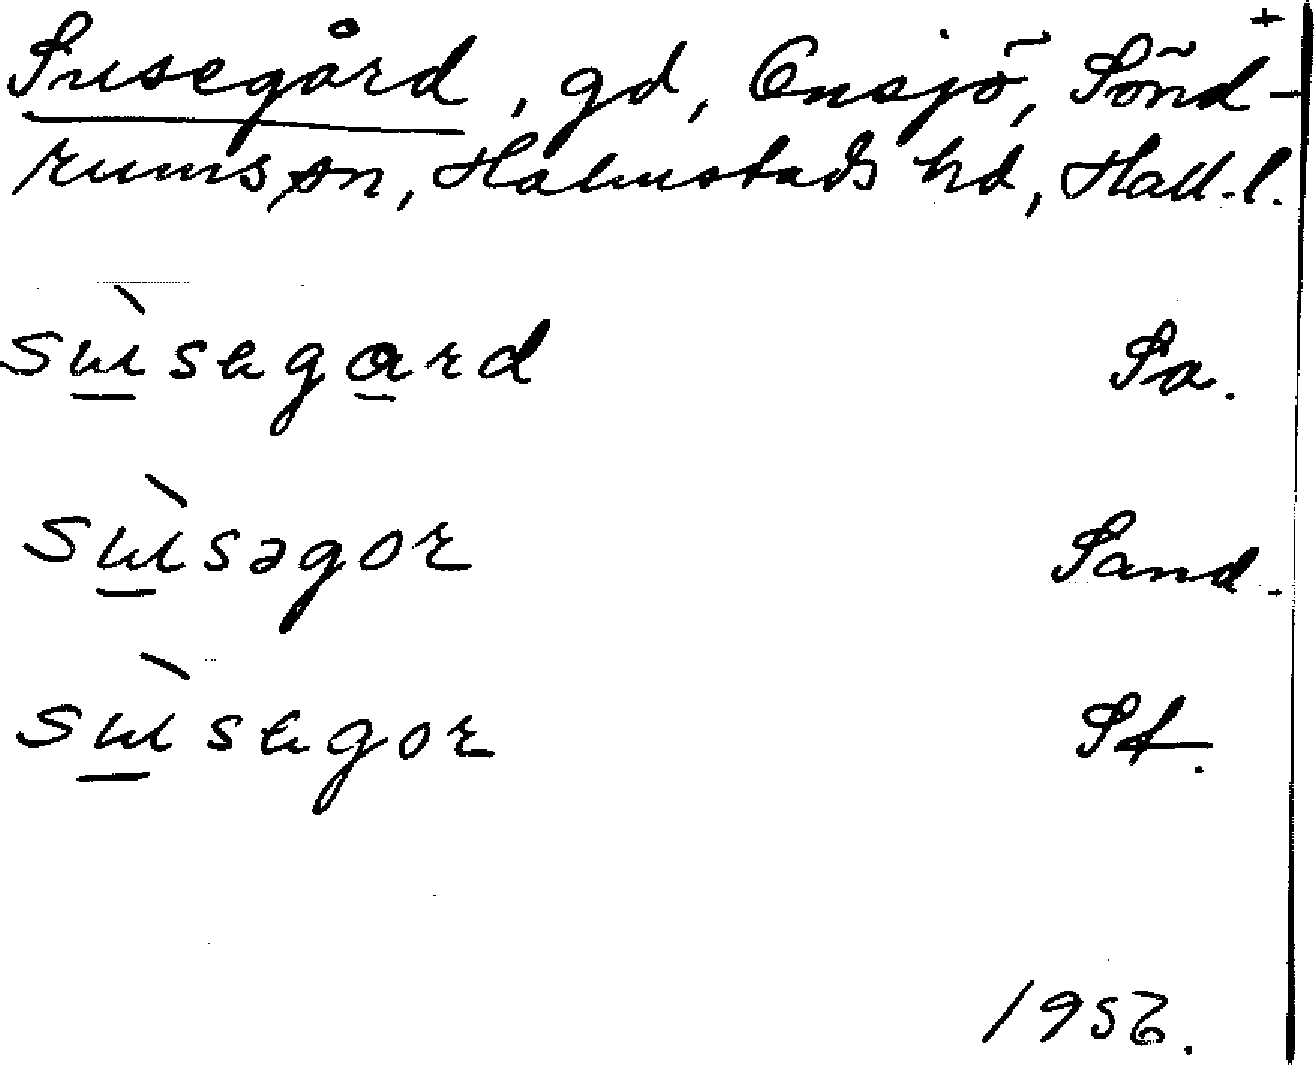 Susegård, gd, Onsjö, Sönd-
rums sn, Halmstads hd, Hall. l.
sɯ̀segard Sa.
sɯ̀səgor Sand.
sɯ̀segor St.
1956.